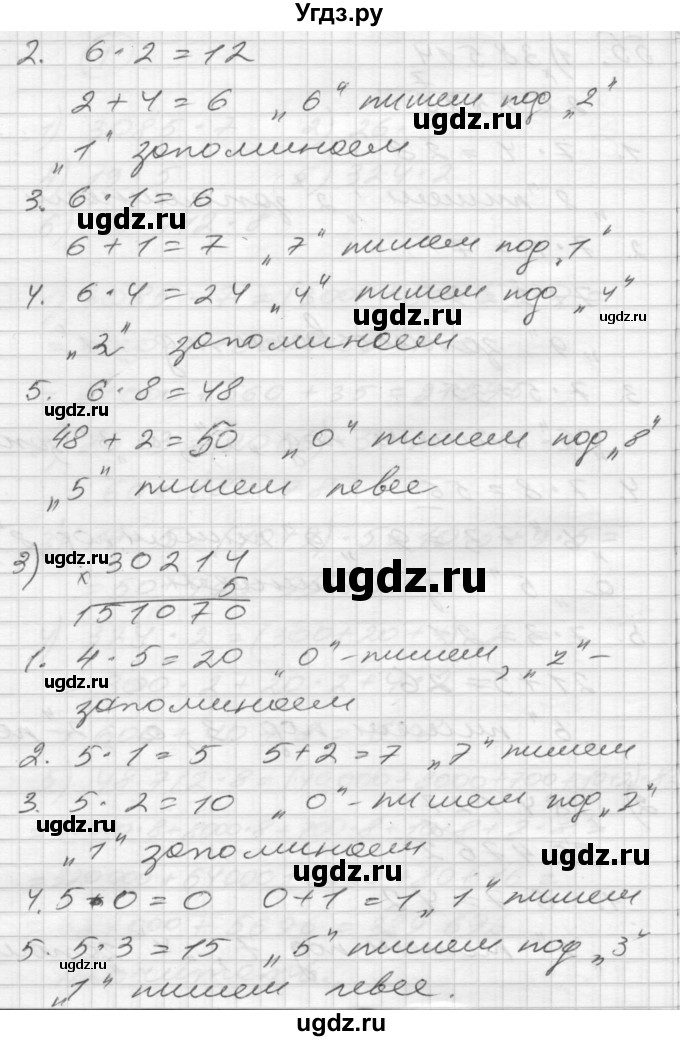 Угдз.ру
2. 6 · 2 = 12
2 + 4 = 6 „6“ пишем под „2“
ugdz.ru
„1“ запоминаем
3. 6 · 1 = 6
ugdz.ru
6 + 1 = 7 „7“ пишем под „1“
4. 6 · 4 = 24 „4“ пишем под „4“
ugdz.ru ugdz.ru
„2“ запоминаем
5. 6 · 8 = 48
ugdz.ru
48 + 2 = 50 „0“ пишем под „8“
„5“ пишем левее
3) х 30214
ugdz.ru
5
ugdz.ru
151070
1. 4 · 5 = 20 „0“ - пишем, „2“ -
ugdz.ru
запоминаем
2. 5 · 1 = 5 5 + 2 = 7 „7“ пишем
3. 5 · 2 = 10 „0“ - пишем под „2“
ugdz.ru
„1“ запоминаем
ugdz.ru
ugdz.ru
4. 5 · 0 = 0 0 + 1 = 1 „1“ пишем
5. 5 · 3 = 15 „5“ пишем под „3“
ugdz.ru
„1“ пишем левее.
ugdz.ru